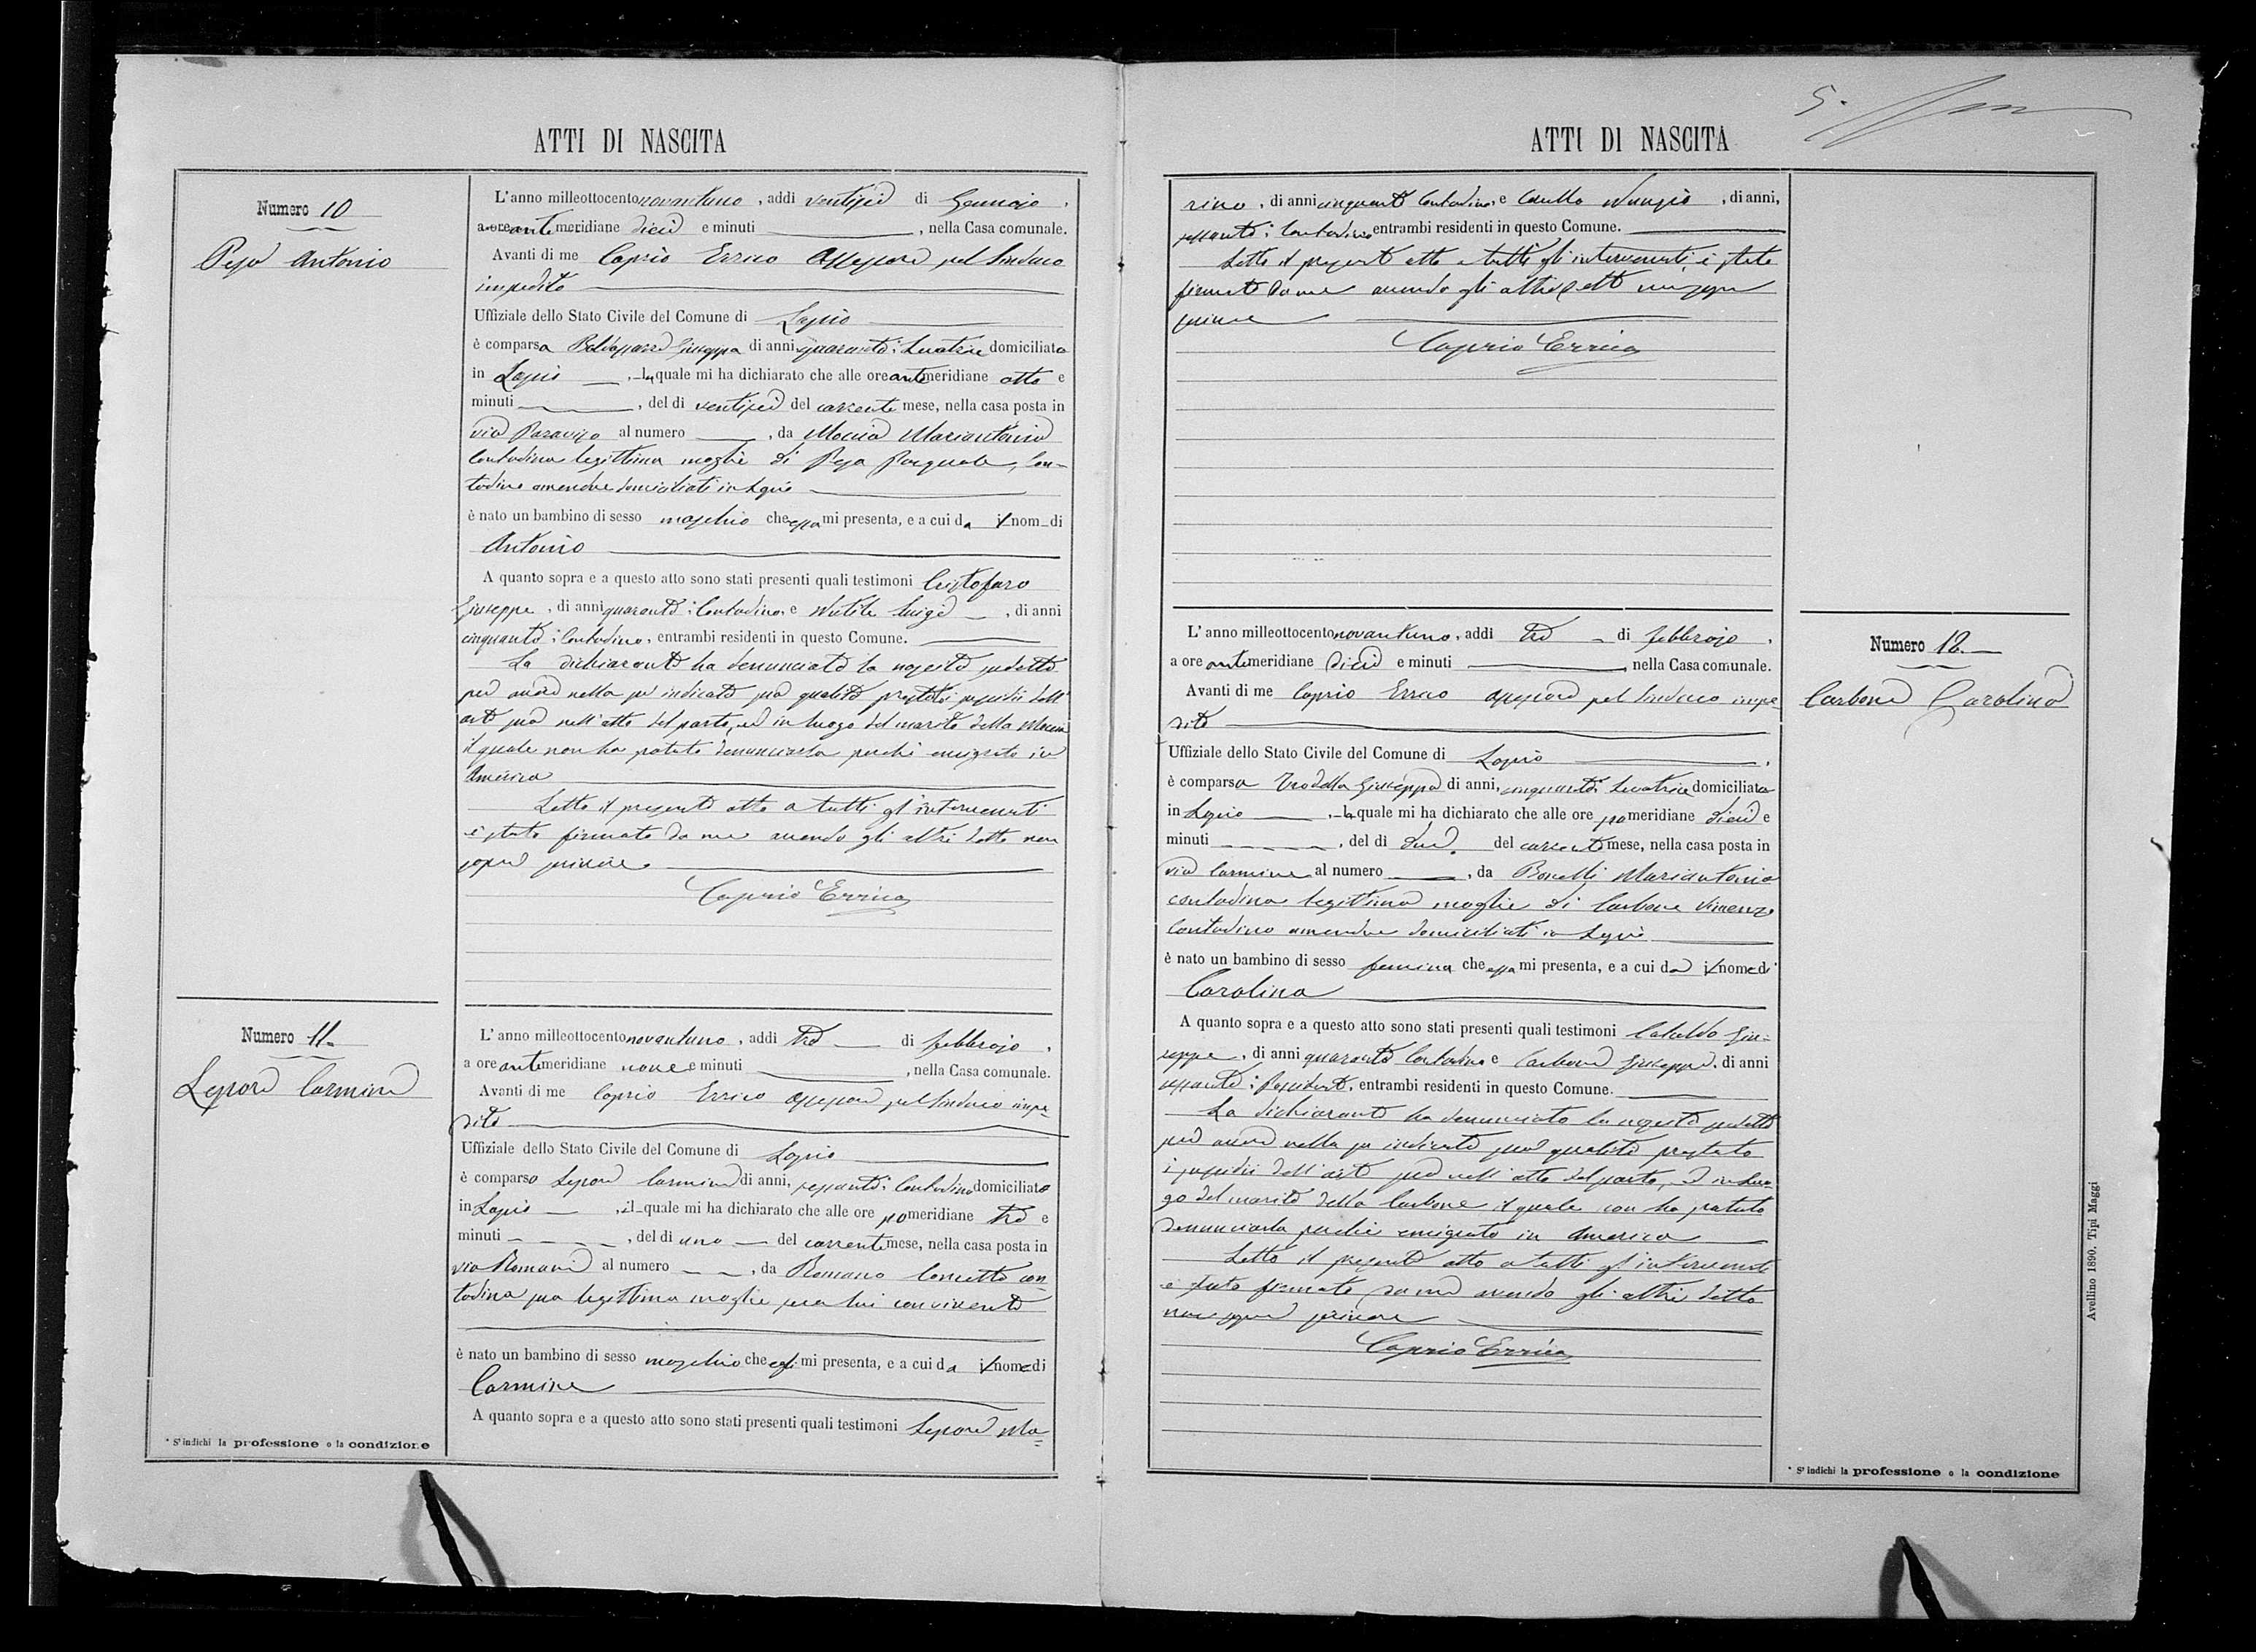 ATTI DI NASCITA
Numero 10
Antonio
L'anno milleottocentonovantuno, addì ventisei di Gennaio,
a ore antimeridiane dieci e minuti , nella Casa comunale.
Avanti di me Caprio Errico Assessore pel Sindaco
impedito
Uffiziale dello Stato Civile del Comune di Lapio
è comparsa Baldassarre Giuseppa di anni quaranta: Levatrice domiciliata
in Lapio , la quale mi ha dichiarato che alle ore antemeridiane otto e
minuti , del dì ventisei del corrente mese, nella casa posta in
via Paraviso al numero , da Moccia Mariantonia
contadina legittima moglie di Pasquale, Con-
tadino amendue domiciliati in Lapio
è nato un bambino di sesso maschio che essa mi presenta, e a cui da il nom di
Antonio
A quanto sopra e a questo atto sono stati presenti quali testimoni Cristofaro
Giuseppe, di anni quaranta: Contadino, e Luigi , di anni
cinquanta: Contadino, entrambi residenti in questo Comune.
La dichiarante ha denunciato la nascita suddetta
per avere nella su indicata sua qualità prestati i sussidii dell'
arte sua nell'atto del parto, ed in luogo del marito della Moccia
il quale non ha potuto denunciarla perchè emigrato in
America
Letto il presente atto a tutti gl'intervenuti
è stato firmato da me avendo gli altri detto non
sapere scrivere
Caprio Errico
Numero 11
Lepore Carmine
L'anno milleottocentonovantuno, addì tre di febbrajo,
a ore antimeridiane nove e minuti , nella Casa comunale.
Avanti di me Caprio Errico Assessore pel Sindaco impe
dito
Uffiziale dello Stato Civile del Comune di Lapio
è comparso Lepore Carmine di anni, sessanta: Contadino domiciliato
in Lapio , il quale mi ha dichiarato che alle ore pomeridiane tre e
minuti , del dì uno del corrente mese, nella casa posta in
via Romani al numero , da Romano Concetta con
tadina sua legittima moglie seco lui convivente
è nato un bambino di sesso maschio che egli mi presenta, e a cui da il nome di
Carmine
A quanto sopra e a questo atto sono stati presenti quali testimoni Lepore Ma
* S'indichi la professione o la condizione
5.
ATTI DI NASCITA
rino, di anni cinquanta Contadino, e Nunzio , di anni,
sessanta: Contadino entrambi residenti in questo Comune.
Letto il presente atto a tutti gli intervenuti è stato
firmato da me avendo gli altri detto non sapere
scrivere
Caprio Errico
Numero 12.
Carbone Carolina
L'anno milleottocentonovantuno, addì tre di febbrajo,
a ore antimeridiane dieci e minuti , nella Casa comunale.
Avanti di me Caprio Errico assessore pel Sindaco impe
dito
Uffiziale dello Stato Civile del Comune di Lapio
è comparsa Giuseppa di anni, cinquanta: Levatrice domiciliata
in Lapio , la quale mi ha dichiarato che alle ore pomeridiane dieci e
minuti , del dì due. del corrente mese, nella casa posta in
via Carmine al numero , da Mariantonia
contadina legittima moglie di Carbone Vincenzo
Contadino amendue domiciliati in Lapio
è nato un bambino di sesso femina che essa mi presenta, e a cui da il nome di
Carolina
A quanto sopra e a questo atto sono stati presenti quali testimoni Cataldo Giu-
seppe, di anni quaranta Contadino e Carbone Giuseppe, di anni
sessanta: Possidente, entrambi residenti in questo Comune.
La dichiarante ha denunciato la nascita suddetta
per avere nella su indicata sua qualità prestato
i sussidii dell'arte sua nell'atto del parto, ed in luo-
go del marito della Carbone il quale non ha potuto
denunciarla perchè emigrato in America
Letto il presente atto a tutti gl'intervenuti
è stato firmato da me avendo gli altri detto
non sapere scrivere
Caprio Errico
* S'indichi la professione o la condizione
Avellino 1890. Tipi Maggi